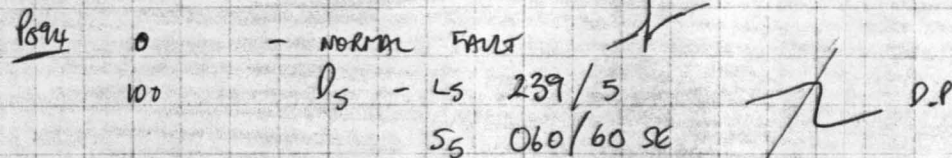 P894 0 - NORMAL FAULT
100 D5 - L5 239/5 D.P
S5 060/60 SE